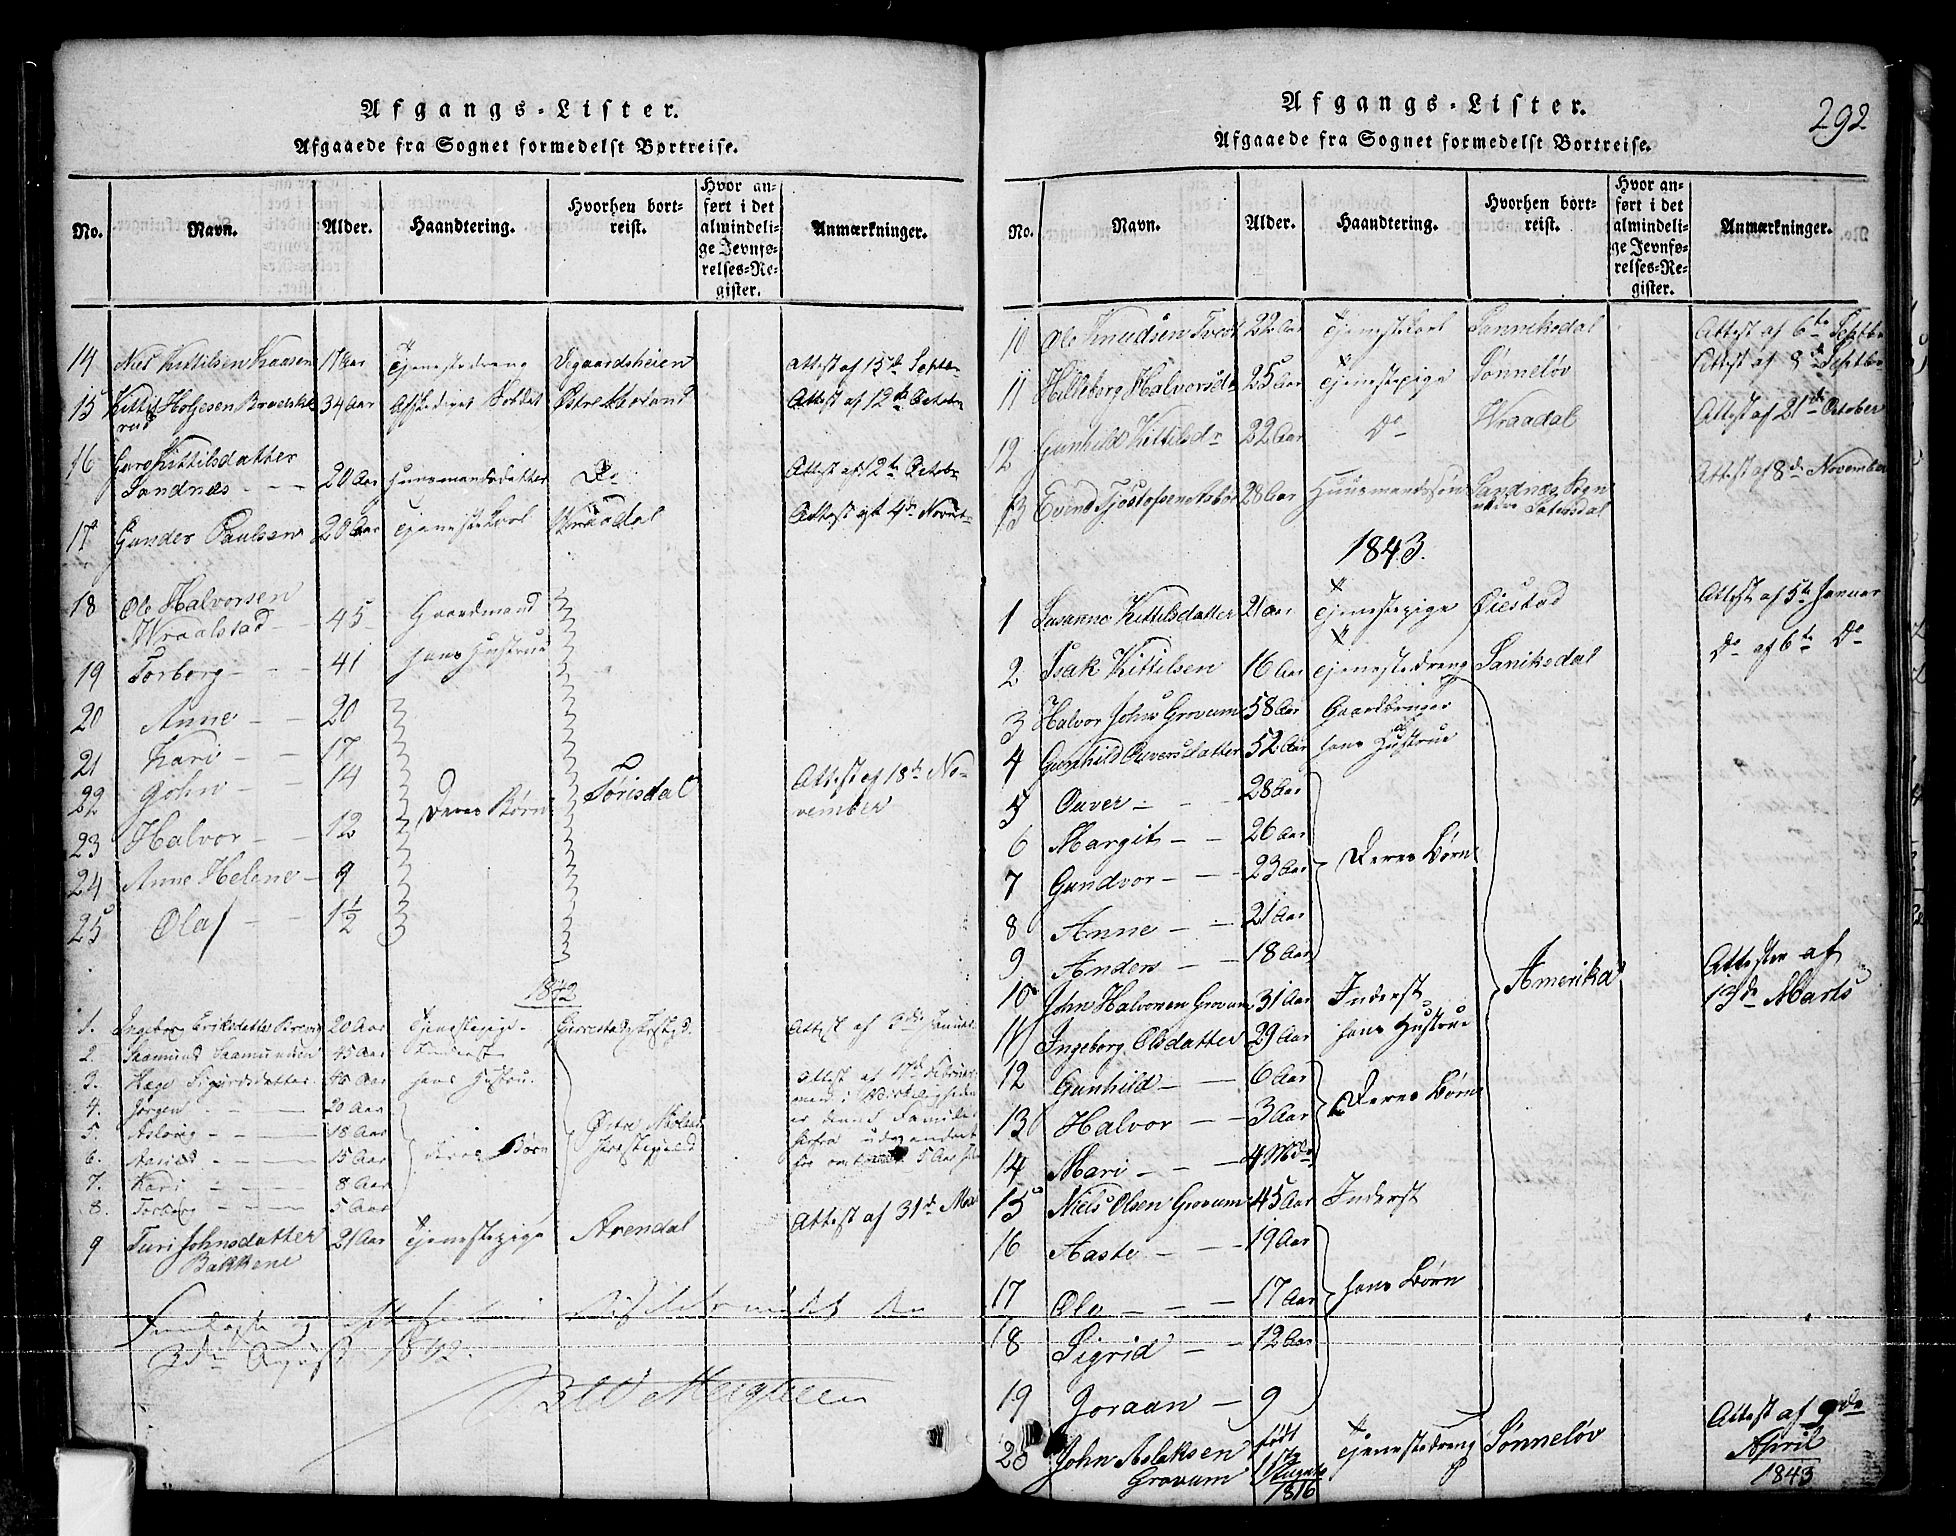 Afgangs-Lister.
Afgaaede fra Sognet formedelst Bortreise.
No.
Navn.
Alder.
Haandtering.
Hvorhen bort-
reist.
Hvor an-
ført i det
almindeli-
ge Jevnfø-
relses-Re-
gister.
Anmærkninger.
14 Niels Kittilsen 17 Aar Tjenestedreng Vegaardsheien Attest af 15de Septbr
15 Kittil Holjesen 34 Aar Afskediget Soldat Østre Moland Attest af 12de Octobr
16 Guro Kittilsdatter
Sandnæs - - 20 Aar Huusmandsdatter Do Attest af 12te Octobr
17 Gunder Paulsen 20 Aar Tjenestekarl Wraadal Attest af 4de Novbr
18 Ole Halvorsen
Wraalstad - 45 - Gaardmand
19 Torborg - - 41 hans Hustrue
20 Anne - - 20
21 Kari - - 17
22 John - - 14 Deres Børn Tørisdal Attest af 18de No-
vember
23 Halvor - 12
24 Anne Helene - 9
25 Olaf - - 1½
1842
1. Ingeborg Eriksdatter 20 Aar Tjenestepige - Gjerestad Attest af
2. Saamund Saamundsen 45 Aar Inderst
3. Hæge Sigurdsdatter 48 Aar hans Hustru. Attest af 17de Februar
4. Jørgen - - - 20 Aar
5. Aslaug - - - 18 Aar deres Børn Østre Moland
6. - - - 15 Aar Præstegjeld
7. Kari - - - 8 Aar
8. Torborg - - - 5 Aar
9 Turi Johnsdatter 21 Aar Tjenestepige Arendal Attest af 31de Mai
Bakkene
2den August 1842.
Afgangs-Lister.
292
Afgaaede fra Sognet formedelst Bortreise.
No.
Navn.
Alder.
Haandtering.
Hvorhen bort-
reist.
Hvor an-
ført i det
almindeli-
ge Jevnfø-
relses-Re-
gister.
Anmærkninger.
10 Ole Knudsen Tvedt 22 Aar Tjenestekarl Sannikedal Attest af 6te Septbr
11 Hilleborg Halvorsdr 25 Aar Tjenestepige Sønneløv Attest af 8de Septbr
12 Gunhild Kittilsdr 22 Aar Do Wraadal Attest af 21de October
13 Evind Tjostofsen 28 Aar Huusmandssøn Sandnæs Sogn Attest af 8de November
Sætersdal
1843.
1 Susanne Kittilsdatter 21 Aar Tjenestepige Øiestad Attest af 5te Januar
2 Isak Kittilsen 16 Aar Tjenestedreng Sanikedal Do af 6te Do
3 Halvor Johns Grovum 58 Aar Gaardbruger
4 Gunhild Ouversdatter 52 Aar hans Hustrue
5 Ouver - - 28 Aar
6 Margit - - 26 Aar
7 Gundvor - - 23 Aar Deres Børn
8 Anne - - 21 Aar
9 Anders - - 18 Aar
10 John Halvorsen Grovum 31 Aar Inderst Amerika Attester af
13de Marts
11 Ingeborg Olsdatter 29 Aar hans Hustrue
12 Gunhild - - 6 Aar
13 Halvor - - 3 Aar Deres Børn
14 Mari - - - 4 Mdr
15 Niels Olsen Grovum 45 Aar Inderst
16 Aaste - - 19 Aar
17 Ole - - - 17 Aar hans Børn
18 Sigrid - - 12 Aar
19 Joraan - 9
20 John Aslaksen født Tjenestedreng Sønneløv Attest af 9de
Grovum 1816 April
1843